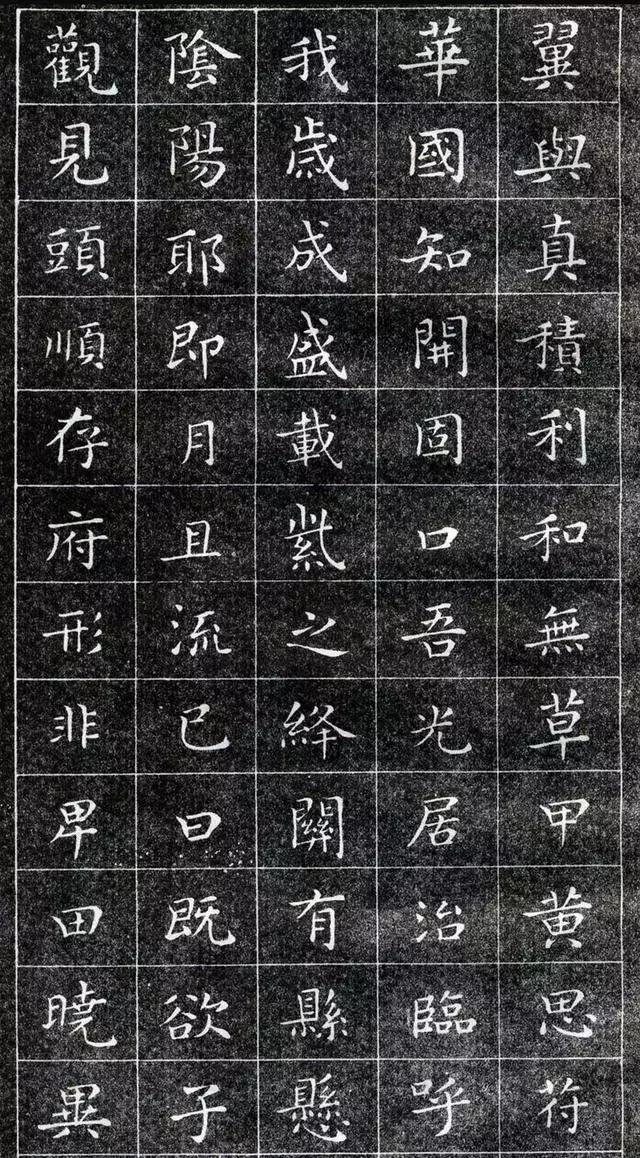 翼與真積利和無草甲黃思苻
華國知開固口吾光居治臨呼
我歲成盛載紫之絳關有縣懸
陰陽耶即月且流已曰既欲子
觀見頭順存府形非卑田曉異